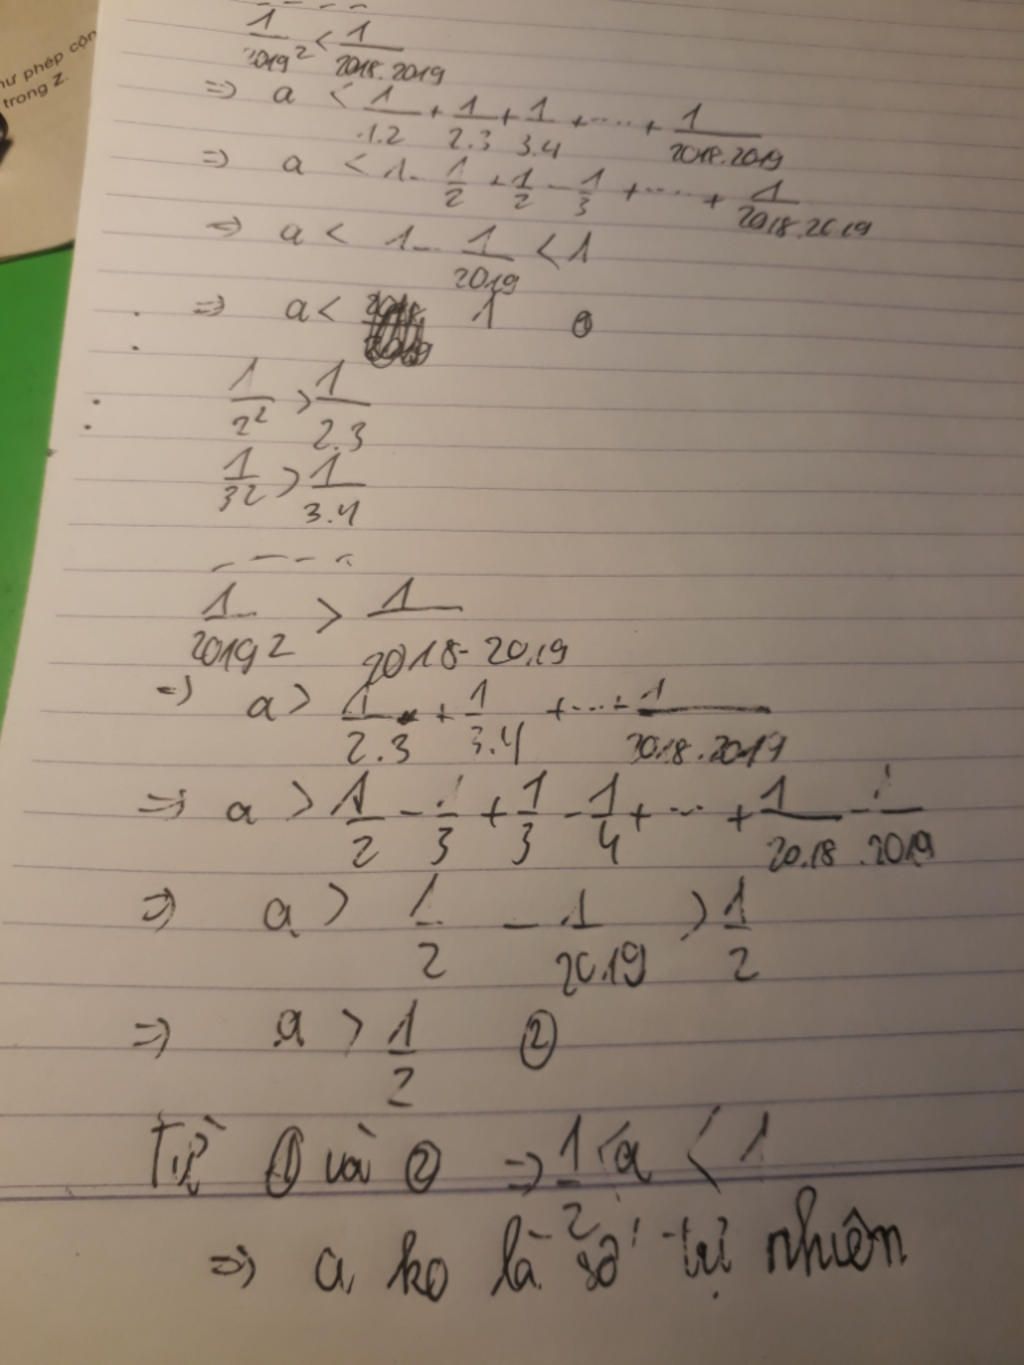 ư phép cộn
trong Z.
1/2019² < 1/2018.2019
=> a < 1/1.2 + 1/2.3 + 1/3.4 + .... + 1/2018.2019
=> a < 1 - 1/2 + 1/2 - 1/3 + .... + 1/2018.2019
=> a < 1 - 1/2019 < 1
=> a < 1 ①
1/2² > 1/2.3
1/3² > 1/3.4
- - - -
1/2019² > 1/2018.2019
=> a > 1/2.3 + 1/3.4 + ... + 1/2018.2019
=> a > 1/2 - 1/3 + 1/3 - 1/4 + ... + 1/2018 - 1/2019
=> a > 1/2 - 1/2019 > 1/2
=> a > 1/2 ②
Từ ① và ② => 1/2 < a < 1
=> a ko là số tự nhiên